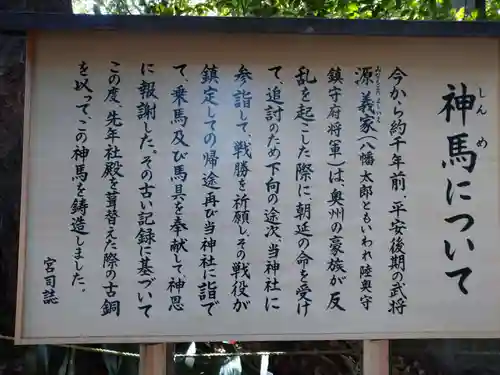 神馬について
しんめ
今から約千年前、平安後期の武将
みなもとのよしいえ
源義家(八幡太郎ともいわれ陸奥守
鎮守府将軍)は、奥州の豪族が反
乱を起こした際に、朝廷の命を受け
て、追討のため下向の途次、当神社に
参詣して、戦勝を祈願し、その戦役が
鎮定しての帰途再び当神社に詣で
て、乗馬及び馬具を奉献して、神恩
に報謝した。その古い記録に基づいて
この度、先年社殿を葺替えた際の古銅
を以って、この神馬を鋳造しました。
宮司誌